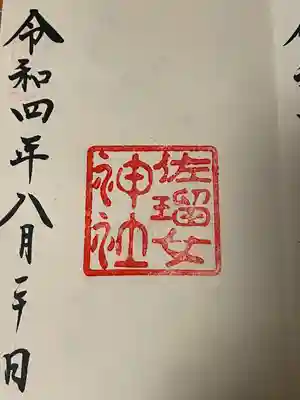 佐瑠女
神社
令和四年八月二十日